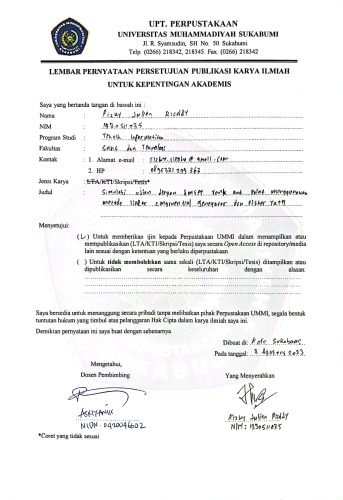 UPT. PERPUSTAKAAN
UNIVERSITAS MUHAMMADIYAH SUKABUMI
Jl. R. Syamsudin, SH No. 50 Sukabumi
Telp. (0266) 218342, 218345. Fax. (0266) 218342
LEMBAR PERNYATAAN PERSETUJUAN PUBLIKASI KARYA ILMIAH
UNTUK KEPENTINGAN AKADEMIS
Saya yang bertanda tangan di bawah ini :
Nama : Rizky Julien Reddy
NIM :
Program Studi : Teknik Informatika
Fakultas : Sains dan Teknologi
Kontak : 1. Alamat e-mail :
2. HP :
Jenis Karya : LTA/KTI/Skripsi/Tesis*
Judul : Simulasi ujian dengan konsep
metode linear congruential generator dan Fisher Yates
Menyetujui:
( ) Untuk memberikan ijin kepada Perpustakaan UMMI dalam menampilkan atau
mempublikasikan (LTA/KTI/Skripsi/Tesis) saya secara Open Access di repository/media
lain sesuai dengan ketentuan yang berlaku diperpustakaan
( ) Untuk tidak membolehkan sama sekali (LTA/KTI/Skripsi/Tesis) ditampilkan atau
dipublikasikan secara keseluruhan dengan alasan:
Saya bersedia untuk menanggung secara pribadi tanpa melibatkan pihak Perpustakaan UMMI, segala bentuk
tuntutan hukum yang timbul atas pelanggaran Hak Cipta dalam karya ilmiah saya ini.
Demikian pernyataan ini saya buat dengan sebenarnya.
Dibuat di: Kota Sukabumi
Pada tanggal: Agustus 2023
Mengetahui,
Dosen Pembimbing
Yang Menyerahkan
Asriyanik
Rizky Julien Reddy
NIDN.
NIM:
*Coret yang tidak sesuai